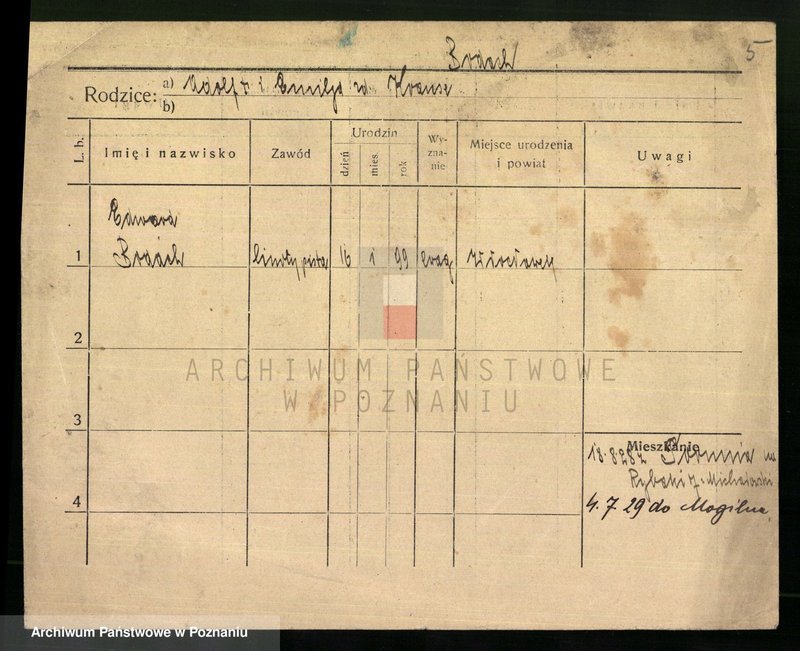 Braach
5
Rodzice: a) Adolf i Emilja zd. Krause
b)
L. b.
Imię i nazwisko
Zawód
Urodzin
dzień
mies.
rok
Wy-
zna-
nie
Miejsce urodzenia
i powiat
Uwagi
Edward
1 Braach linotypista 16 1 99 ewag
2
ARCHIWUM PAŃSTWOWE
W POZNANIU
3
Mieszkanie
18.8.28 z
Rybaki 7
4
4.7.29 do Mogilna
Archiwum Państwowe w Poznaniu